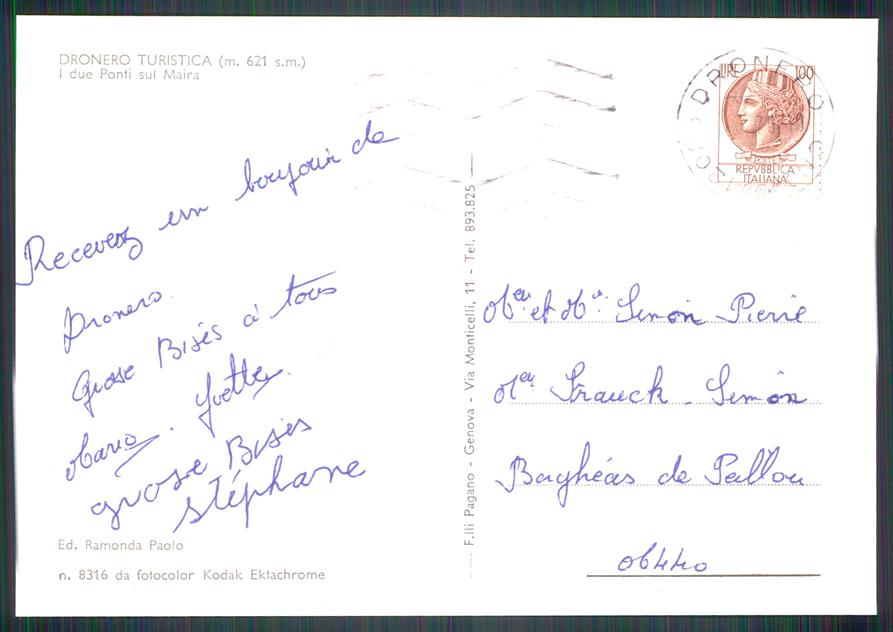 DRONERO TURISTICA (m. 621 s.m.)
I due Ponti sul Maira
Recevez un bonjour de
Dronero.
Grose Bisés à tous
Mario. Yvette.
grose Bisés
stéphane
Ed. Ramonda Paolo
n. 8316 da fotocolor Kodak Ektachrome
F.lli Pagano - Genova - Via Monticelli, 11 - Tel. 893.825
DRONERO
LIRE 100
POSTE
REPVBBLICA
ITALIANA
et Simon Pierre
Franck. Simon
de
06440